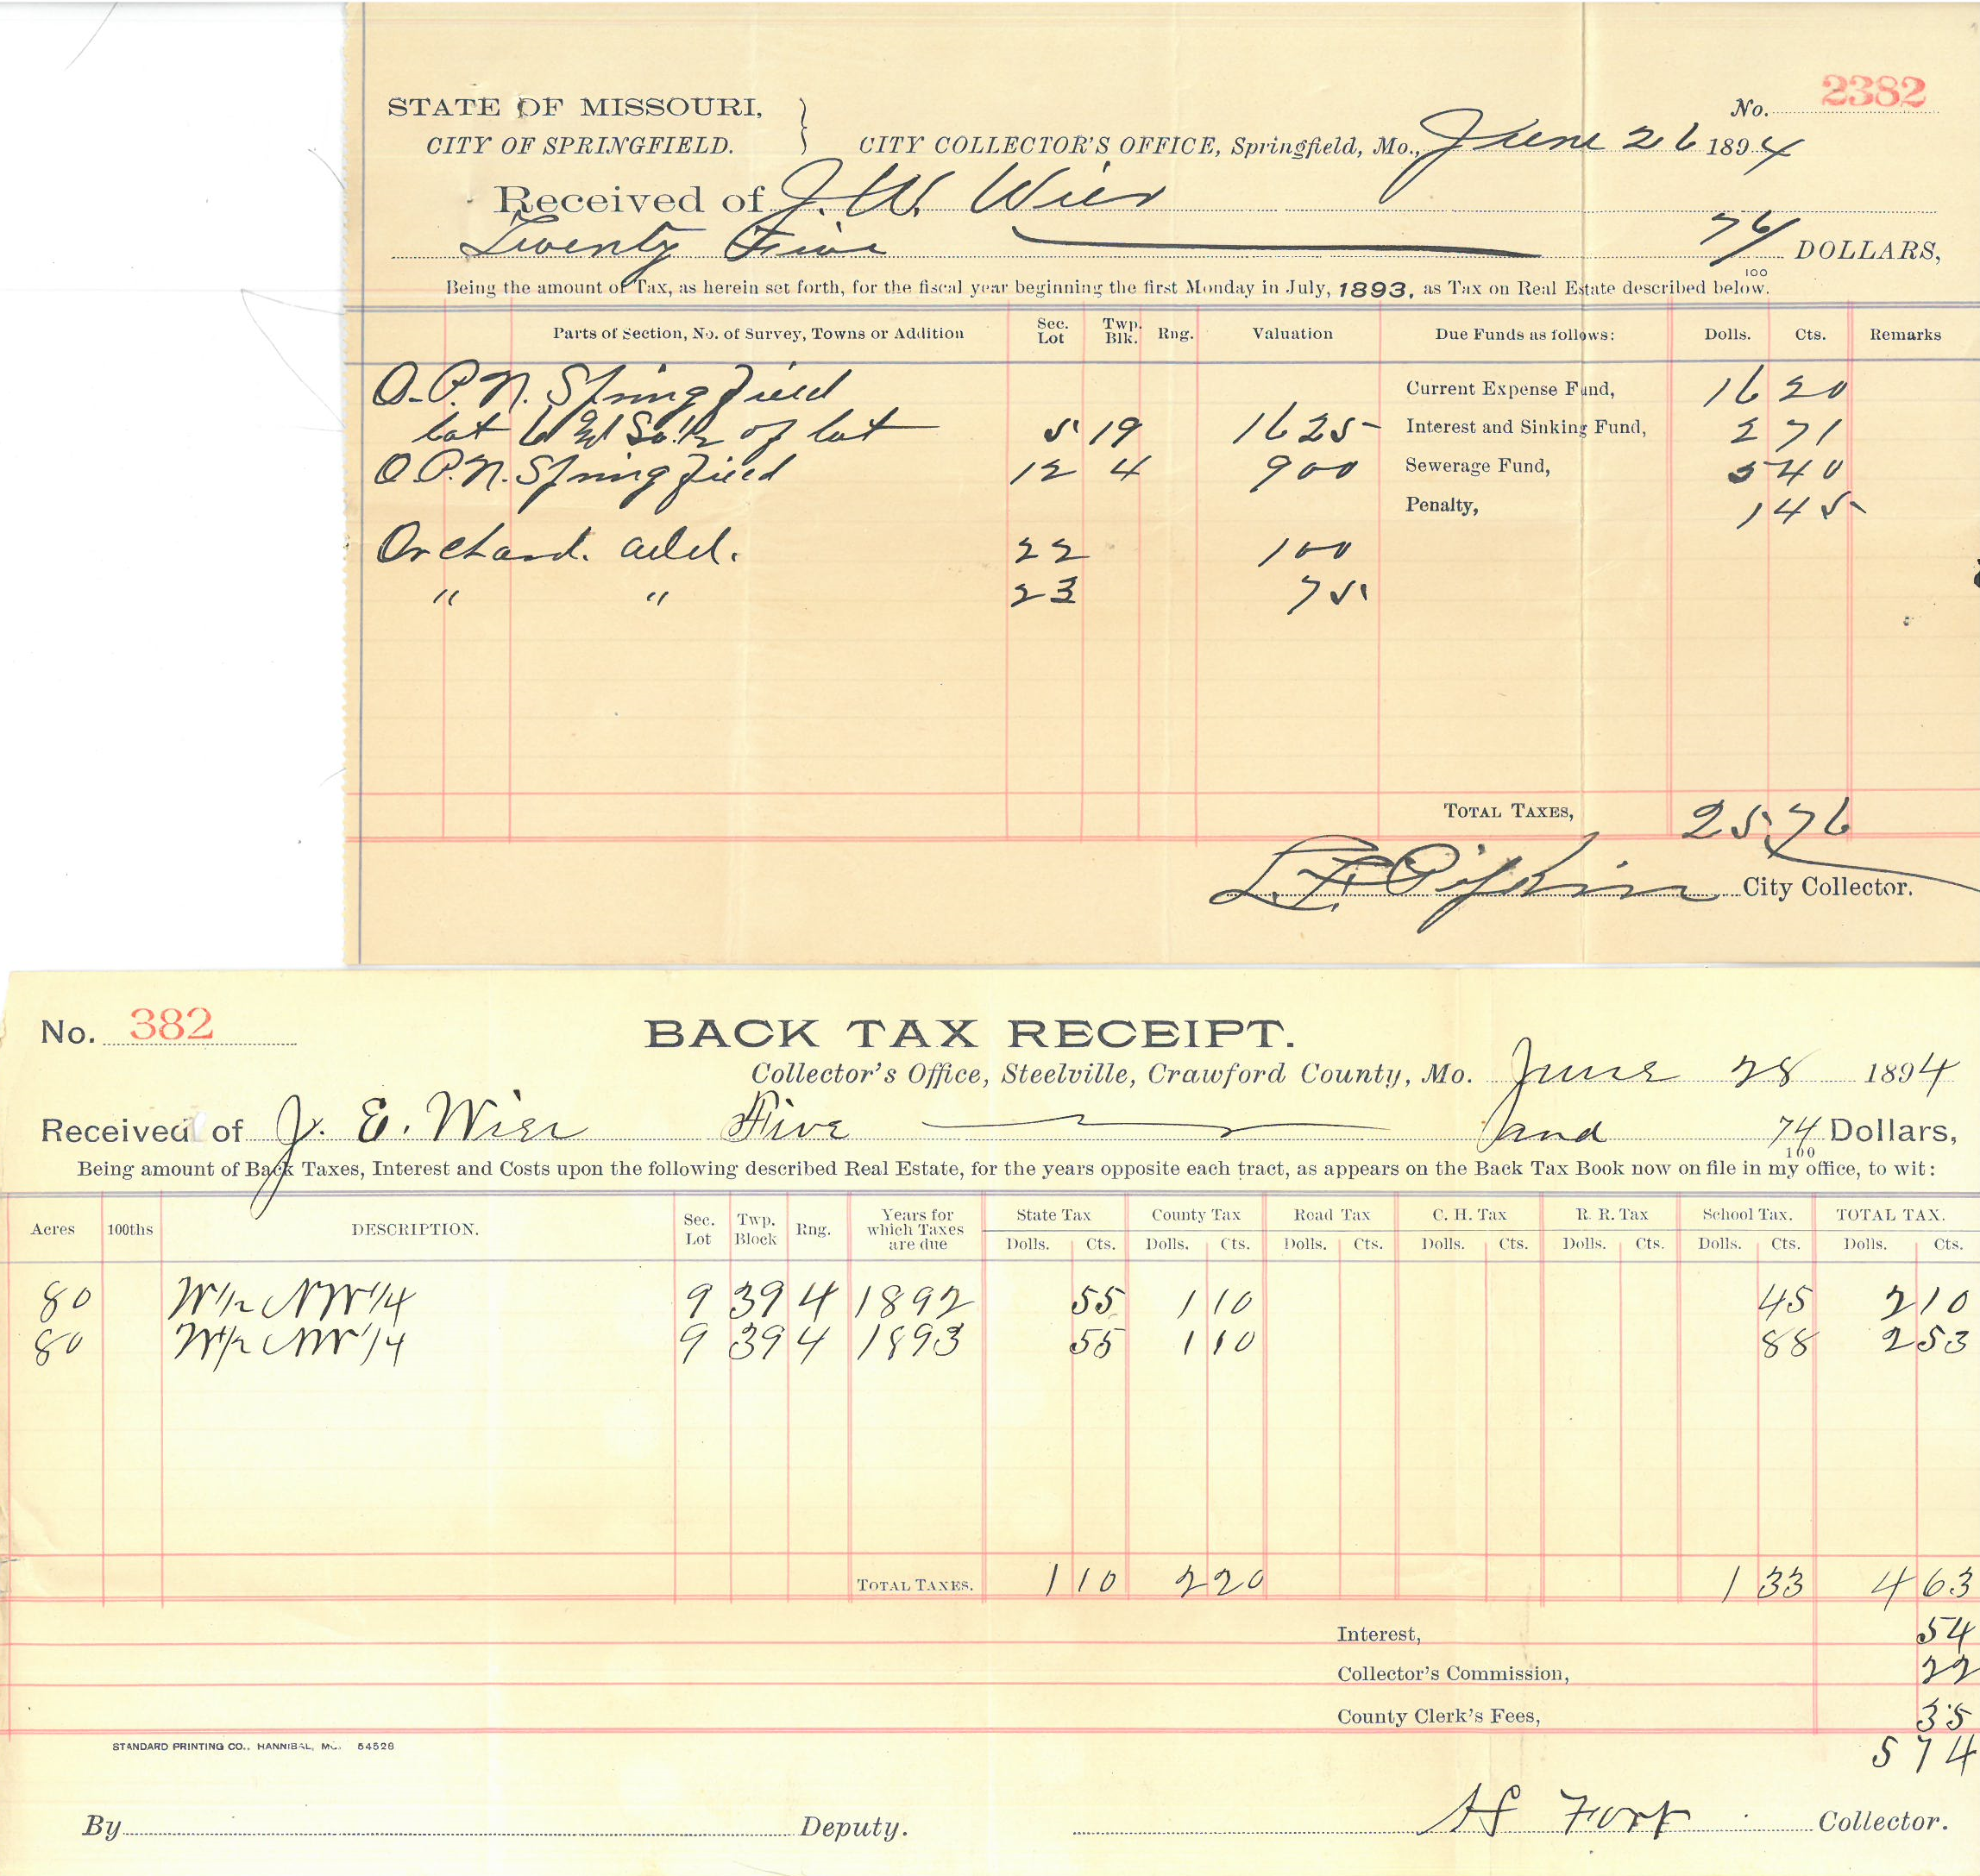 No. 2382
STATE OF MISSOURI,
CITY OF SPRINGFIELD.
CITY COLLECTOR'S OFFICE, Springfield, Mo., June 26 1894
Received of J. W. Wier
Twenty Five 76/100 DOLLARS,
Being the amount of Tax, as herein set forth, for the fiscal year beginning the first Monday in July, 1893, as Tax on Real Estate described below.
Parts of Section, No. of Survey, Towns or Addition Sec. Lot Twp. Blk. Rng. Valuation Due Funds as follows: Dolls. Cts. Remarks
O.P.N. Springfield Current Expense Fund, 16 20
lot 6 & So. 1/2 of lot 5 19 1625 Interest and Sinking Fund, 2 71
O.P.N. Springfield 12 4 900 Sewerage Fund, 5 40
Penalty, 1 45
Orchard. add. 22 100
" " 23 75
TOTAL TAXES, 25.76
L. F. Pipkin City Collector.
No. 382
BACK TAX RECEIPT.
Collector's Office, Steelville, Crawford County, Mo. June 28 1894
Received of J. E. Wier Five and 74/100 Dollars,
Being amount of Back Taxes, Interest and Costs upon the following described Real Estate, for the years opposite each tract, as appears on the Back Tax Book now on file in my office, to wit:
Acres 100ths DESCRIPTION. Sec. Lot Twp. Block Rng. Years for which Taxes are due State Tax County Tax Road Tax C. H. Tax R. R. Tax School Tax. TOTAL TAX.
Dolls. Cts. Dolls. Cts. Dolls. Cts. Dolls. Cts. Dolls. Cts. Dolls. Cts. Dolls. Cts.
80 W 1/2 NW 1/4 9 39 4 1892 55 1 10 45 2 10
80 W 1/2 NW 1/4 9 39 4 1893 55 1 10 88 2 53
TOTAL TAXES. 1 10 2 20 1 33 4 63
Interest, 54
Collector's Commission, 22
County Clerk's Fees, 35
STANDARD PRINTING CO., HANNIBAL, MO. 54528
5 74
By Deputy. Fort Collector.